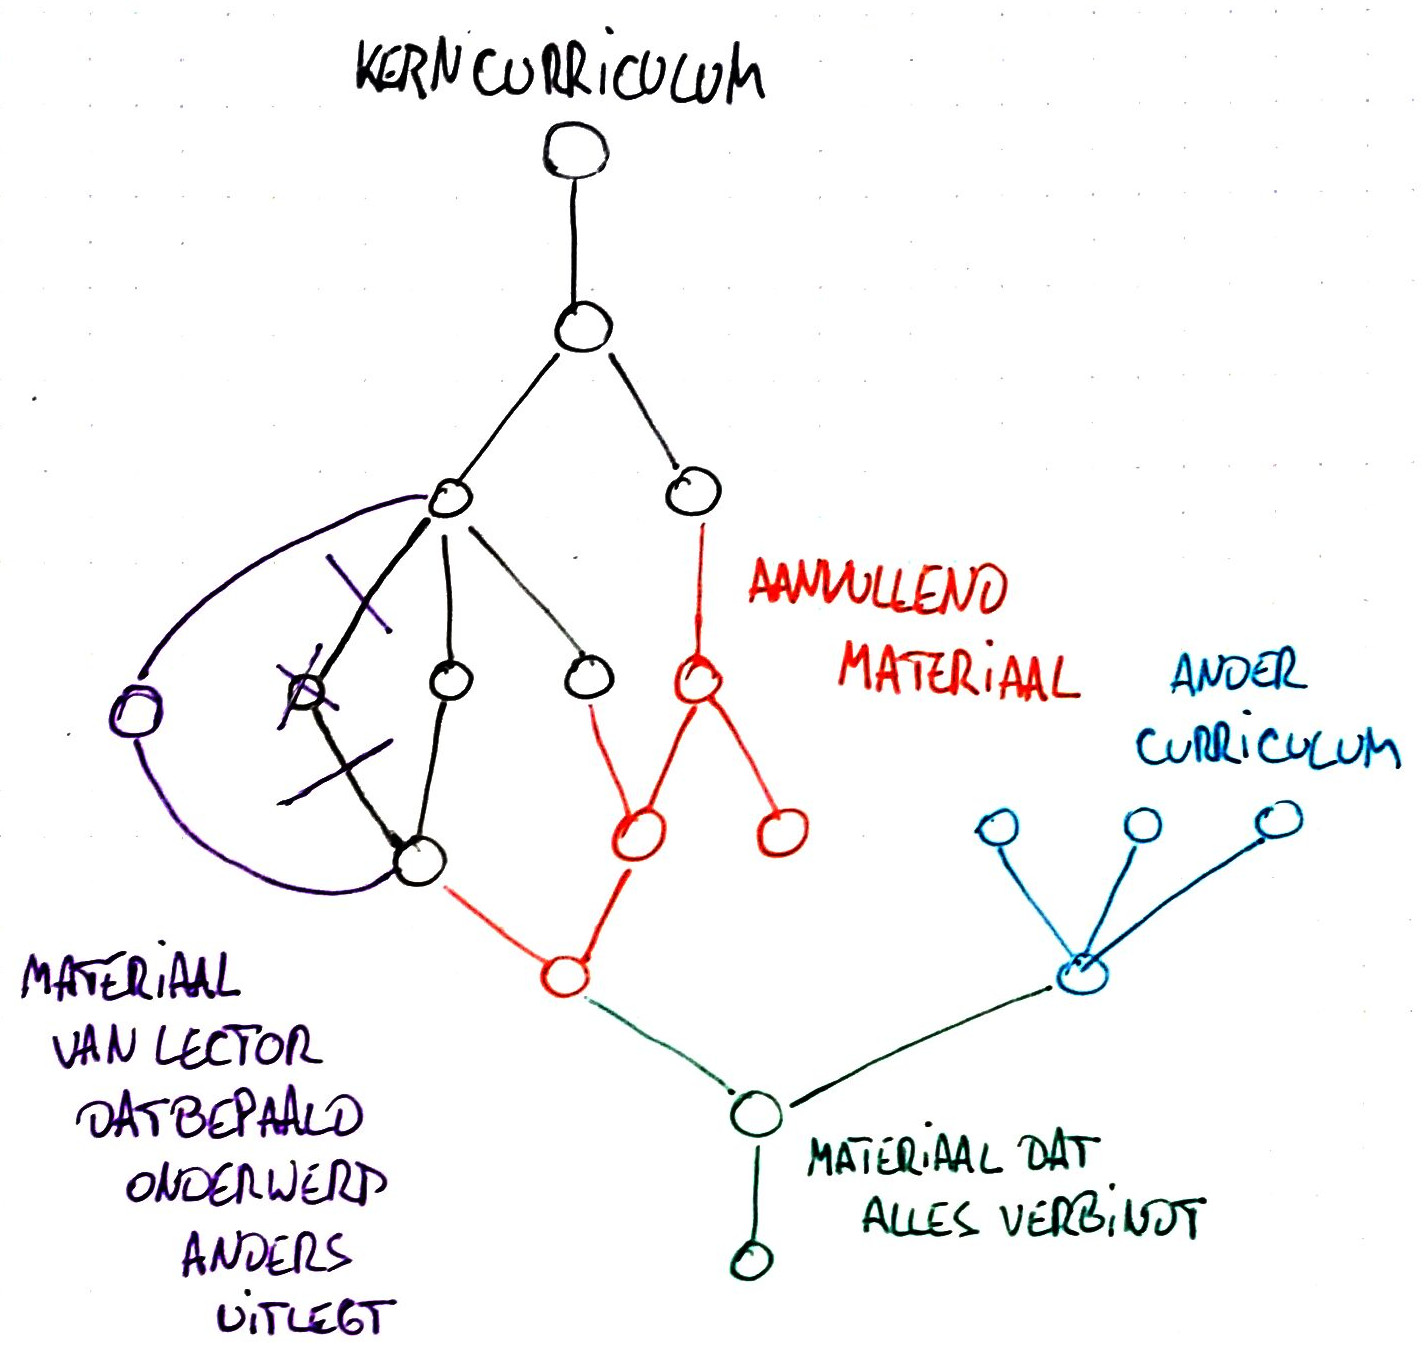 KERNCURRICULUM
AANVULLEND
MATERIAAL
ANDER
CURRICULUM
MATERIAAL
VAN LECTOR
DAT BEPAALD
ONDERWERP
ANDERS
UITLEGT
MATERIAAL DAT
ALLES VERBINDT